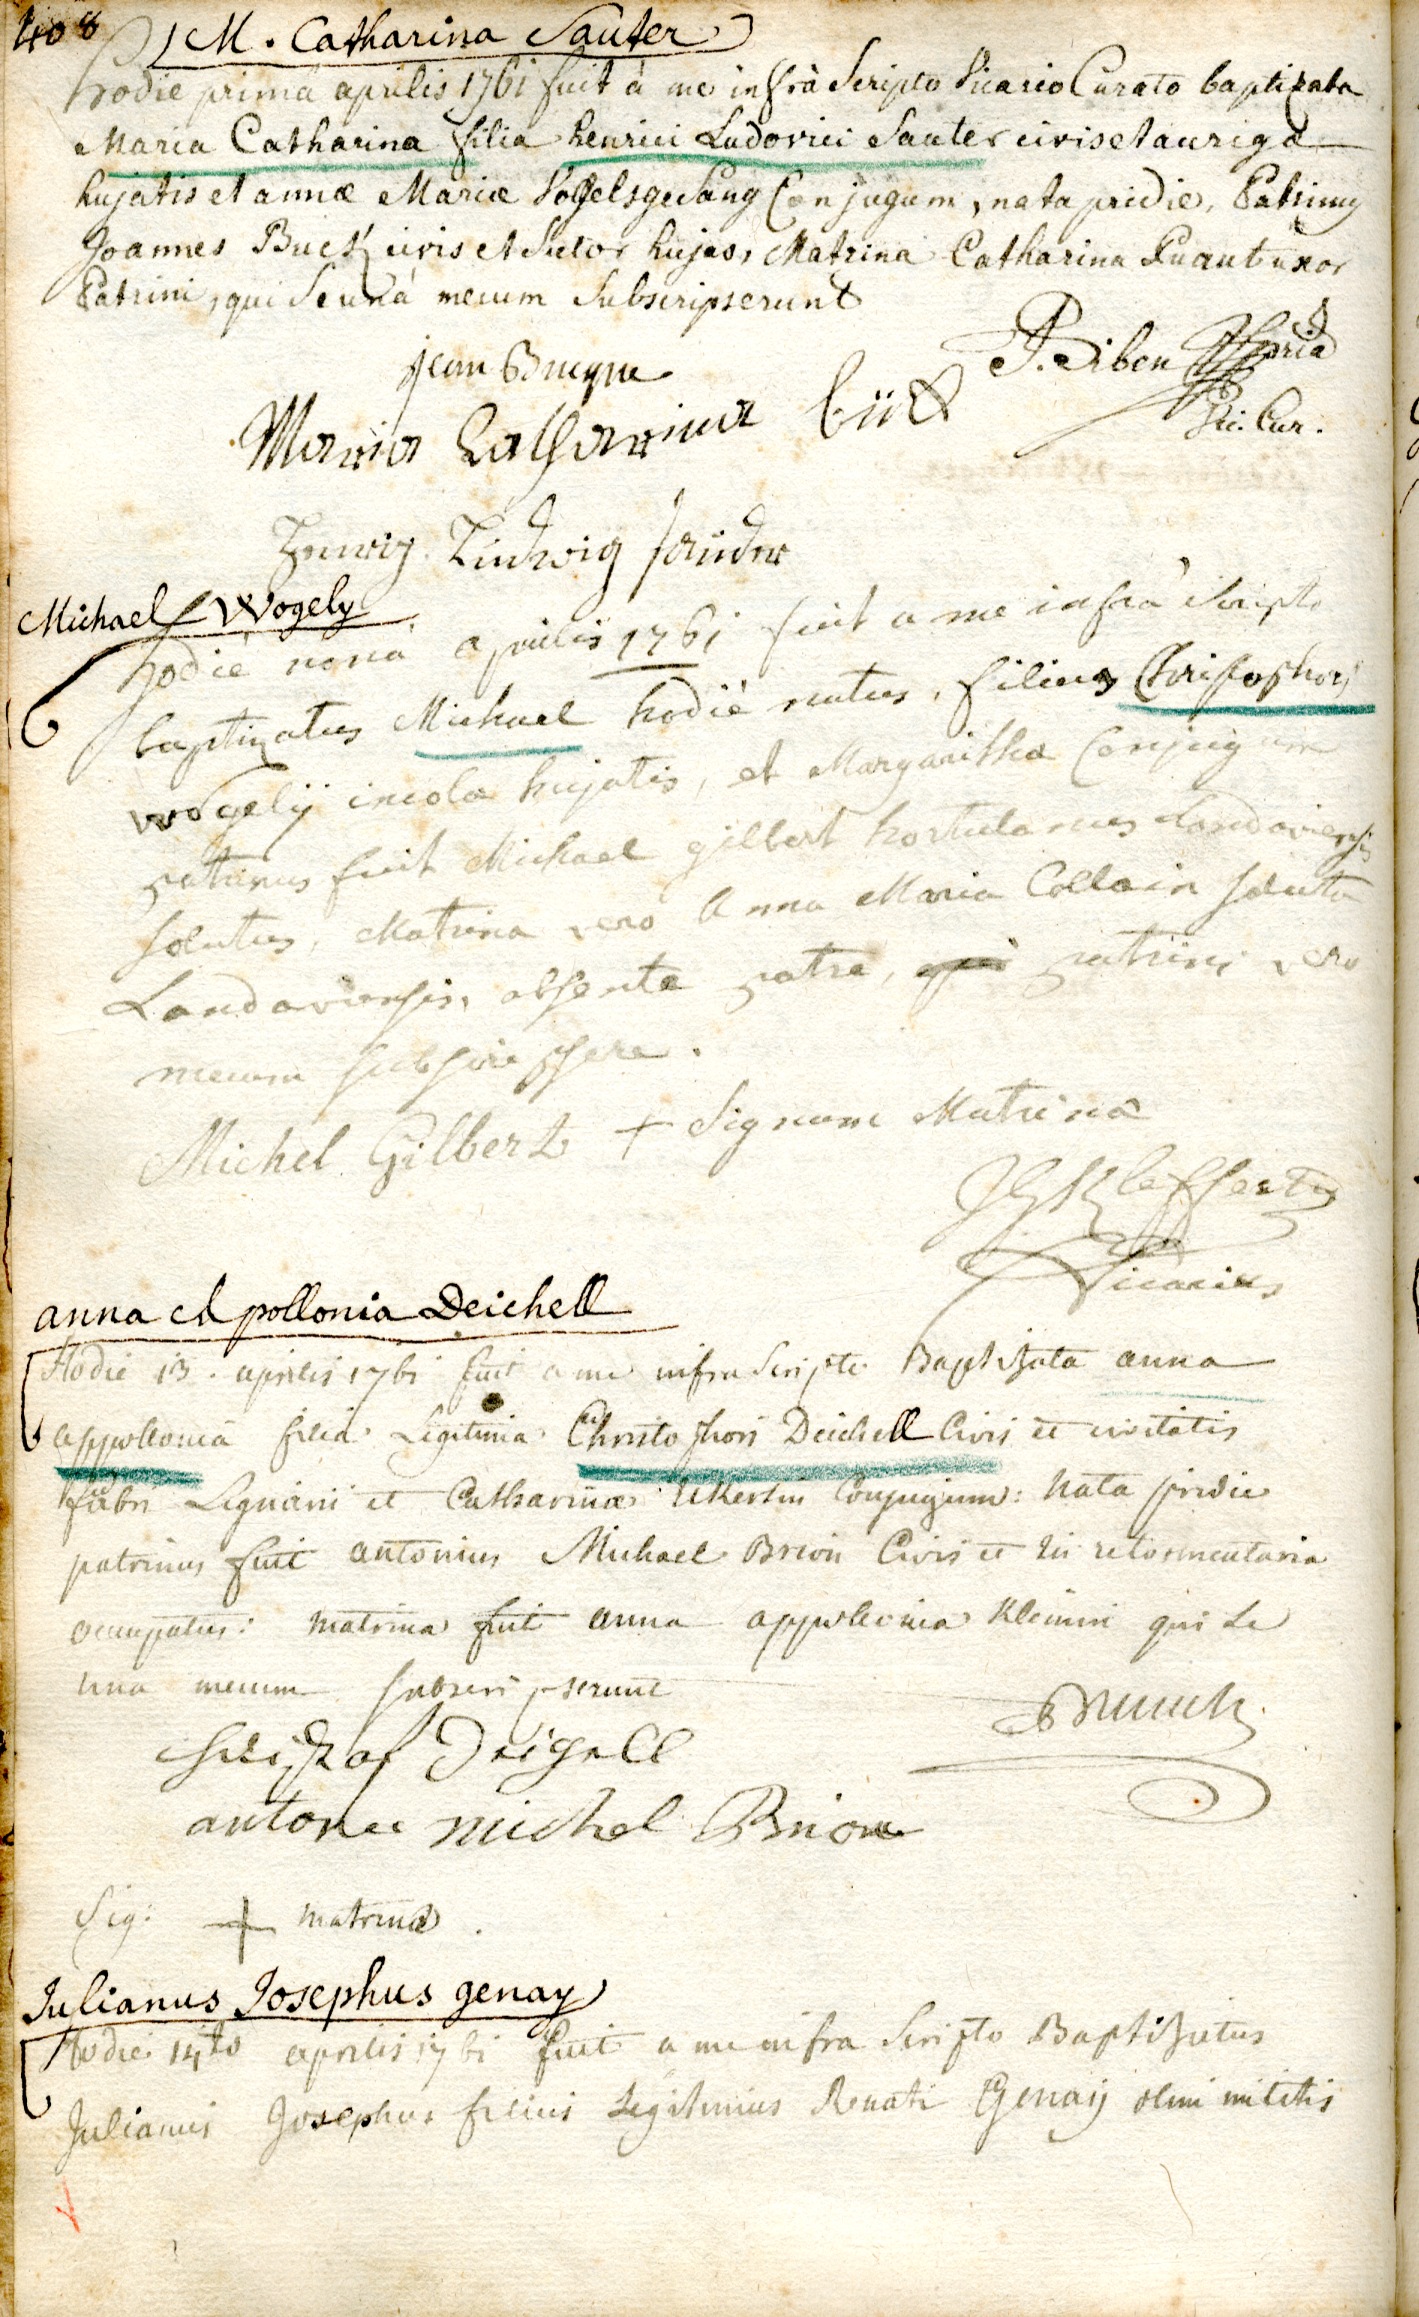 408
M. Catharina Sauter
hodie prima aprilis 1761 fuit à me infrà Scripto Vicario Curato baptizata
Maria Catharina filia henrici Ludovici Sauter civis et aurigæ
hujatis et annæ Mariæ Vogelsgesang Conjugum, nata pridie, Patrinus
Joannes Buck civis et Sutor hujas, Matrina Catharina uxor
Patrini, qui Se unà mecum Subscripserunt
jean
Maria Catharina bück
P. Vic. Cur.
Ludwig
Michael Wogely
hodiè nonâ aprilis 1761 fuit a me infrà Scripto
baptizatus Michael hodiè natus, filius Christophori
wogelÿ incolæ hujatis, et Margarithæ Conjugum
patrinus fuit Michael gilbert hortulanus Landaviensis
solutus, Matrina vero Anna Maria Collain soluta
Landaviensis, absente patre, patrini vero
mecum subscripsere.
Michel Gilbert + Signum Matrinæ
Vicarius
anna Apollonia Deichell
Hodie 13. aprilis 1761 fuit a me infra Scripto Baptizata anna
appollonia filia Legitima Christophori Deichell Civis et civitatis
fabri Lignarii et Catharinæ Conjugum: Nata pridie
patrinus fuit antonius Michael Brion Civis et in re tormentaria
occupatus: matrina fuit anna appollonia Kleinin qui se
una mecum subscripserunt
antone michel Brion
Sig: + matrinæ.
Julianus Josephus genay
Hodie 14to aprilis 1761 fuit a me infra Scripto Baptizatus
Julianus Josephus filius Legitimus Renati Genaÿ olim militis